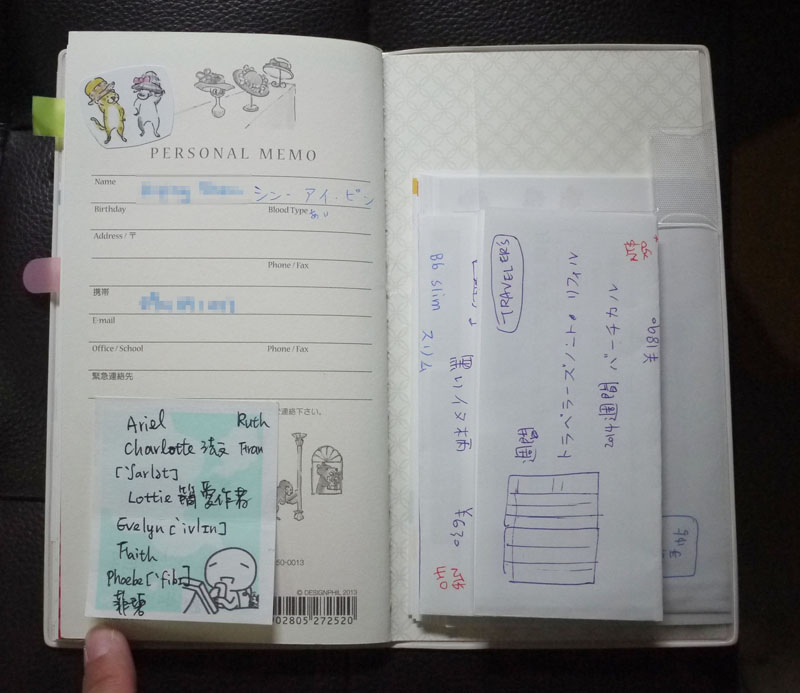 PERSONAL MEMO
Name
シン・アイ・ピン
Birthday
Blood Type
Address / 〒
Phone / Fax
携帯
E-mail
Office / School
Phone / Fax
緊急連絡先
連絡下さい。
Ariel
Ruth
Charlotte
Fran
Lottie 簡愛作者
Evelyn [ˋivlIn]
Faith
Phoebe [ˋfibI]
50-0013
© DESIGNPHIL 2013
02805 272520
B6 slim スリム
¥630
NT$
140
TRAVELER'S
トラベラーズノート リフィル
2014 週間 バーチカル
¥1890
NT$
週間